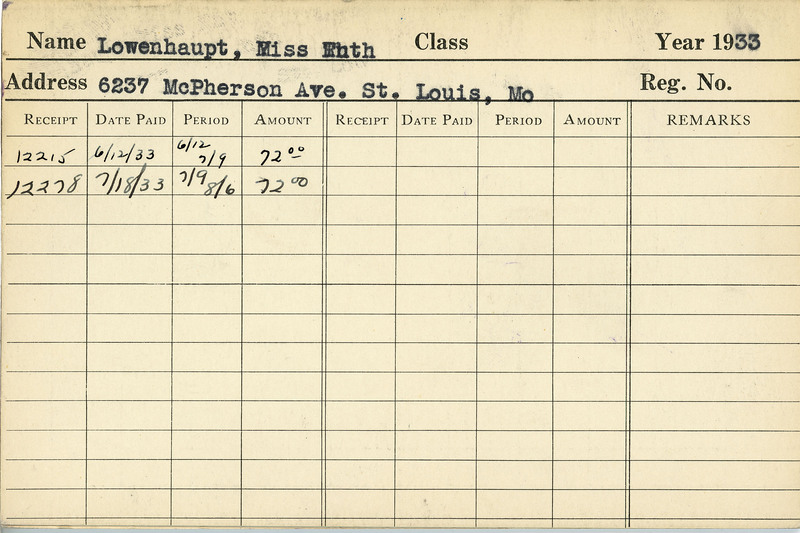 Name Lowenhaupt, Miss Class Year 1933
Address 6237 McPherson Ave. St. Louis, Mo Reg. No.
RECEIPT DATE PAID PERIOD AMOUNT RECEIPT DATE PAID PERIOD AMOUNT REMARKS
12215 6/12/33 6/12 7/9 72.00
12278 7/18/33 7/9 8/6 72.00